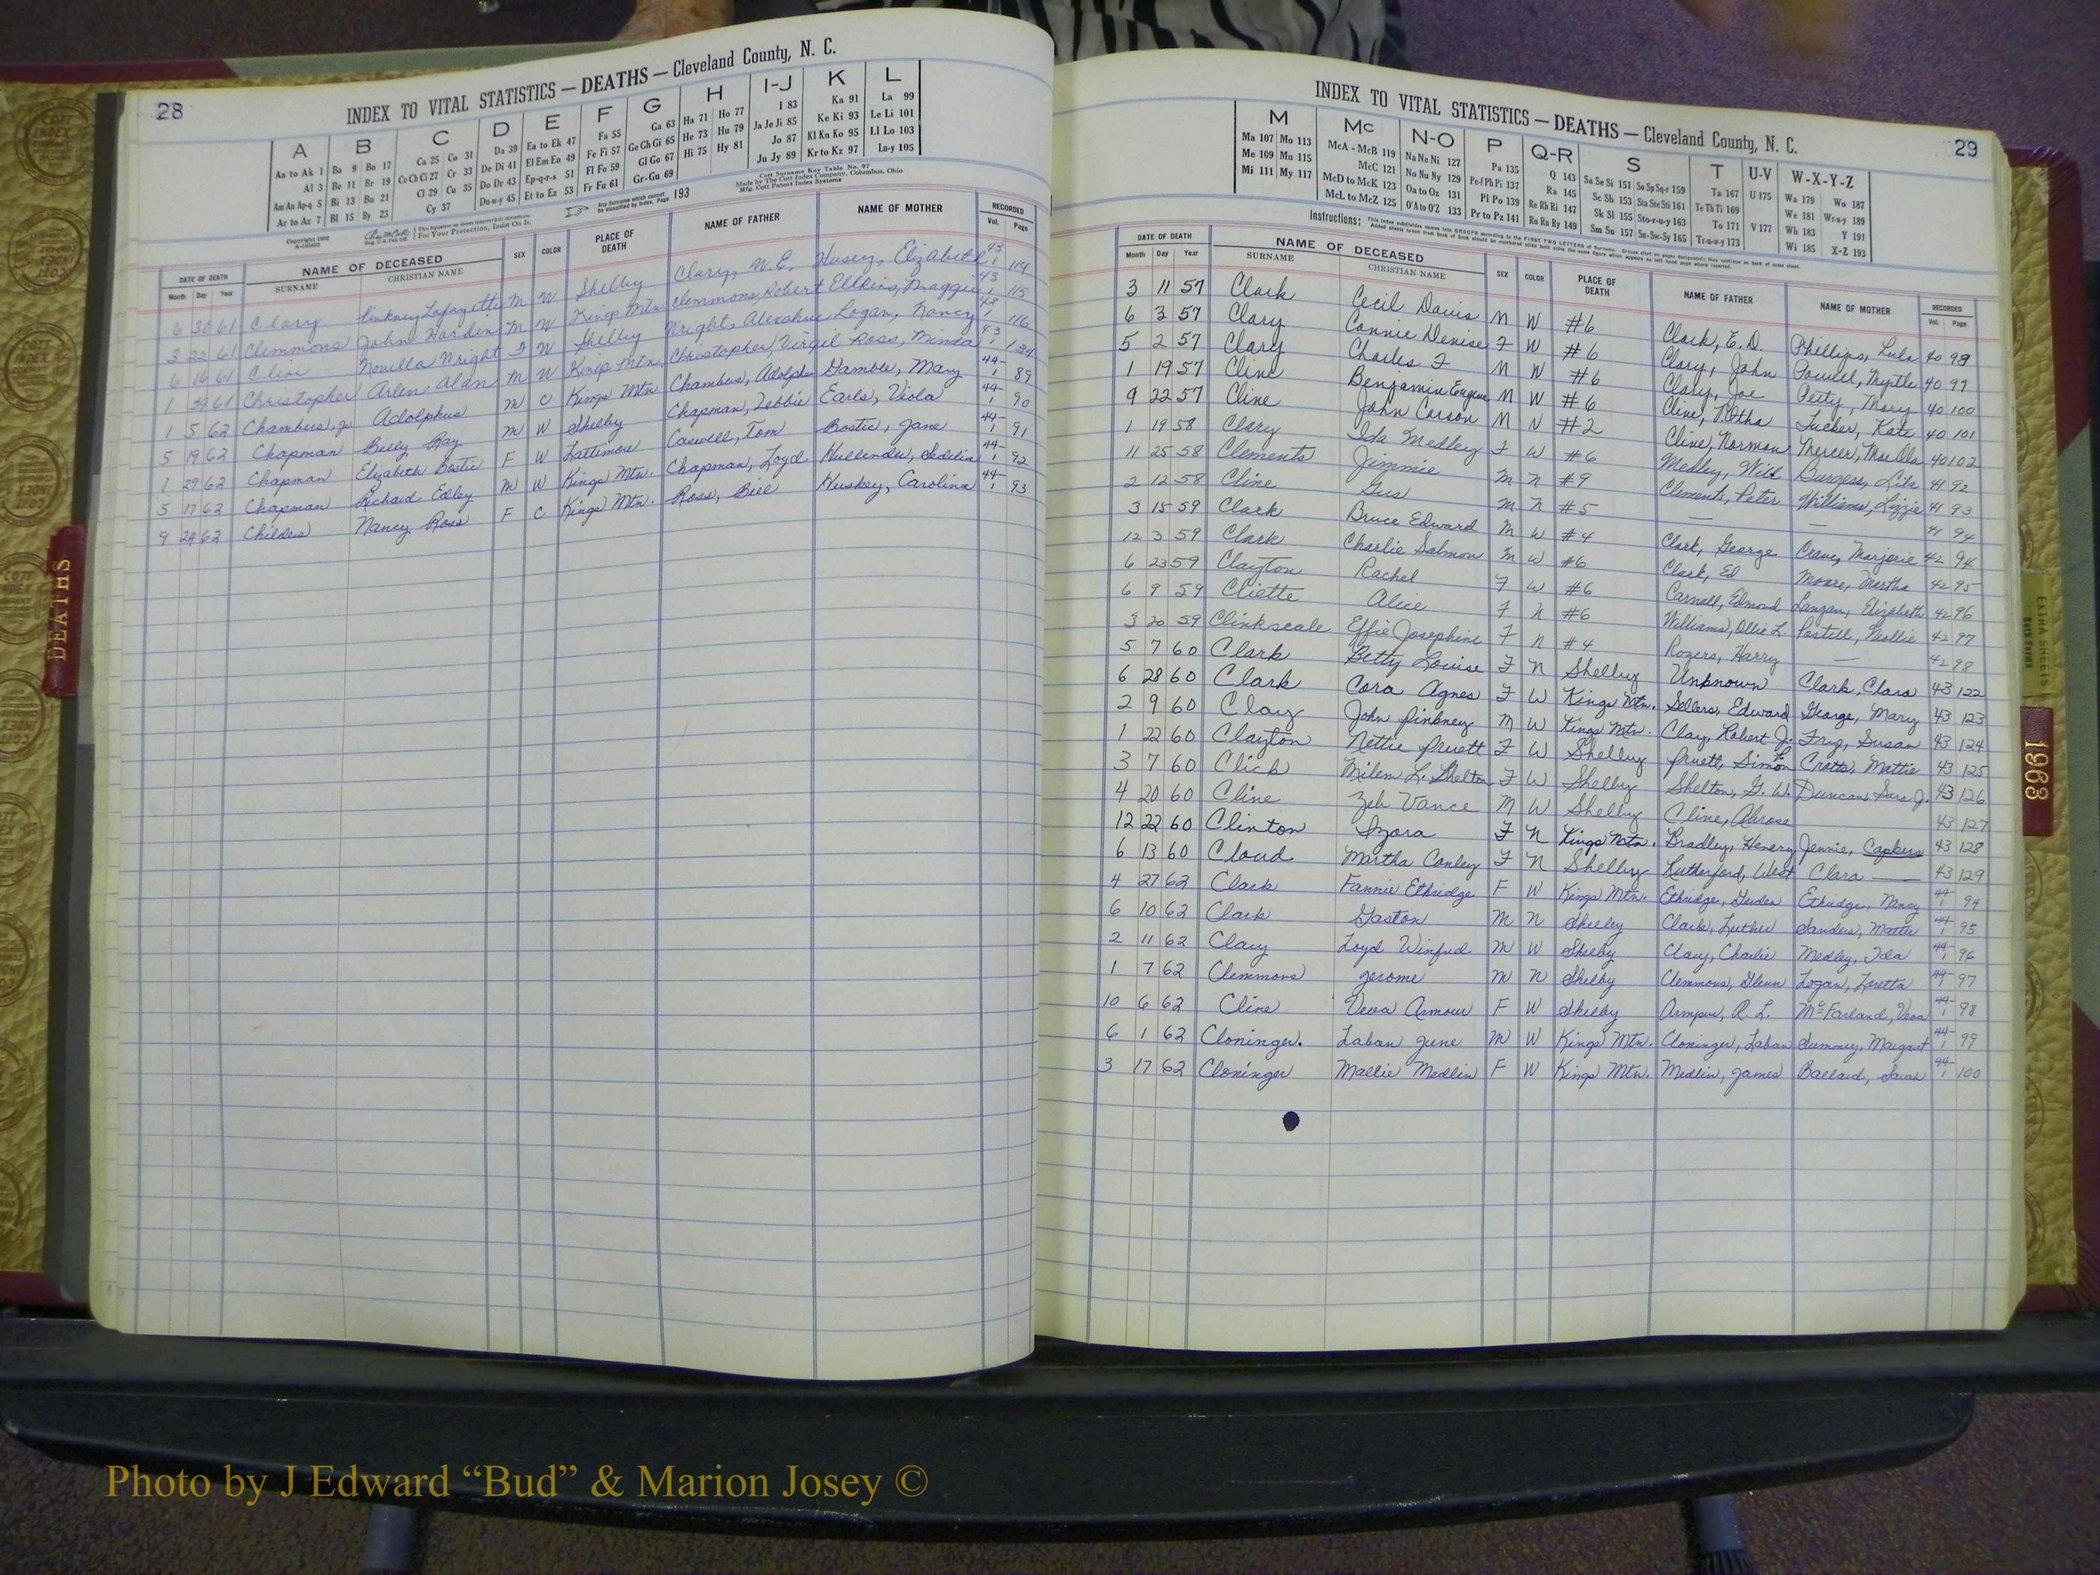 28
INDEX TO VITAL STATISTICS — DEATHS — Cleveland County, N. C.
A B C D E F G H I-J K L
Aa to Ak 1 Ba 9 Bo 17 Ca 25 Co 31 Da 39 Ea to Ek 47 Fa 55 Ga 63 Ha 71 Ho 77 I 83 Ka 91 La 99
Al 3 Be 11 Br 19 Ce Ch Ci 27 Cr 33 De Di 41 El Em En 49 Fe Fi 57 Ge Gh Gi 65 He 73 Hu 79 Ja Je Ji 85 Ke Ki 93 Le Li 101
Am An Ap-q 5 Bi 13 Bu 21 Cl 29 Cu 35 Do Dr 43 Ep-q-r-s 51 Fl Fo 59 Gl Go 67 Hi 75 Hy 81 Jo 87 Kl Kn Ko 95 Ll Lo 103
Ar to Az 7 Bl 15 By 23 Cy 37 Du-w-y 45 Et to Ez 53 Fr Fu 61 Gr-Gu 69 Ju Jy 89 Kr to Kz 97 Lu-y 105
Any Surname which cannot be classified by Index, Page 193
Cott Surname Key Table No. 97
Made by The Cott Index Company, Columbus, Ohio
Mfg. Cott Patent Index Systems
For Your Protection, Insist On It.
DATE OF DEATH NAME OF DECEASED SEX COLOR PLACE OF DEATH NAME OF FATHER NAME OF MOTHER RECORDED
Month Day Year SURNAME CHRISTIAN NAME Vol. Page
6 30 61 Clary Pinkney Lafayette M W Shelby Clary, W. E. Husey, Elizabeth 43 1 114
3 22 61 Clemmons John Harden M W Kings Mtn Clemmons, Robert Elkins, Maggie 43 1 115
6 16 61 Cline Novella Wright F W Shelby Wright, Logan, Nancy 43 1 116
1 29 61 Christopher Arlen Alan M W Kings Mtn. Christopher, Virgil Ross, Minda 43 1 134
1 5 62 Chambers, Jr Adolphus M C Kings Mtn Chambers, Adolphus Gamble, Mary 44- 1 89
5 19 62 Chapman Billy Ray M W Shelby Chapman, Tebbie Earls, Viola 44- 1 90
1 29 62 Chapman Elizabeth Bostic F W Lattimore Caswell, Tom Bostic, Jane 44- 1 91
5 17 62 Chapman Richard Exley M W Kings Mtn. Chapman, Loyd Hullender, Sedelia 44- 1 92
9 24 62 Childers Nancy Ross F C Kings Mtn. Ross, Bill Huskey, Carolina 44- 1 93
29
INDEX TO VITAL STATISTICS — DEATHS — Cleveland County, N. C.
M Mc N-O P Q-R S T U-V W-X-Y-Z
Ma 107 Mo 113 McA - McB 119 Na Ne Ni 127 Pa 135 Q 143 Sa Se Si 151 So Sp Sq-r 159 Ta 167 U 175 Wa 179 Wo 187
Me 109 Mu 115 McC 121 No Nu Ny 129 Pe-f Ph Pi 137 Ra 145 Sc Sh 153 Sta Ste Sti 161 Te Th Ti 169 We 181 Wr-u-y 189
Mi 111 My 117 McD to McK 123 Oa to Oz 131 Pl Po 139 Re Rh Ri 147 Sk Sl 155 Sto-r-u-y 163 To 171 V 177 Wh 183 Y 191
McL to McZ 125 O'A to O'Z 133 Pr to Pz 141 Ro Ru Ry 149 Sm Sn 157 Su-Sw-Sy 165 Tr-u-w-y 173 Wi 185 X-Z 193
Instructions:
DATE OF DEATH NAME OF DECEASED SEX COLOR PLACE OF DEATH NAME OF FATHER NAME OF MOTHER RECORDED
Month Day Year SURNAME CHRISTIAN NAME Vol. Page
3 11 57 Clark Cecil Davis M W #6 Clark, E. D. Phillips, Lula 40 98
6 3 57 Clary Connie Denise F W #6 Clary, John Powell, Myrtle 40 99
5 2 57 Clary Charles F M W #6 Clary, Joe Petty, Mary 40 100
1 19 57 Cline Benjamin Eugene M W #6 Cline, Tucker, Kate 40 101
9 22 57 Cline John Carson M N #2 Cline, Norman Mercer, Mae Ola 40 102
1 19 58 Clary Ida Medley F W #6 Medley, Wild Burgess, Lila 41 92
11 25 58 Clements Jimmie M N #9 Clements, Peter Williams, Lizzie 41 93
2 12 58 Cline Gus M N #5 — — 41 94
3 15 59 Clark Bruce Edward M W #4 Clark, George Crane, Marjorie 42 94
12 3 59 Clark Charlie Salmon M W #6 Clark, Ed Moore, Martha 42 95
6 23 59 Clayton Rachel F W #6 Carnall, Edmond Langan, Elizabeth 42 96
6 9 59 Cliette Alice F N #6 Williams, Ollie L. Postell, Mollie 42 97
3 20 59 Clinkscale Effie Josephine F N #4 Rogers, Harry — 42 98
5 7 60 Clark Betty Louise F N Shelby Unknown Clark, Clara 43 122
6 28 60 Clark Cora Agnes F W Kings Mtn. Sellers, Edward George, Mary 43 123
2 9 60 Clay John Pinkney M W Kings Mtn. Clay, Robert J. Frye, Susan 43 124
1 22 60 Clayton Nettie Pruett F W Shelby Pruett, Simon P. Crotts, Mattie 43 125
3 7 60 Click Milem L. Shelton F W Shelby Shelton, G. W. Duncan, Sara J. 43 126
4 20 60 Cline Zeb Vance M W Shelby Cline, Alrose 43 127
12 22 60 Clinton Izora F N Kings Mtn. Bradley, Henery Jennie, Capkers 43 128
6 13 60 Cloud Martha Conley F N Shelby Rutherford, West Clara — 43 129
4 27 62 Clark Fannie Ethridge F W Kings Mtn. Ethridge, Ethridge, Nancy 44- 1 94
6 10 62 Clark Gaston M N Shelby Clark, Luther Sanders, Mattie 44- 1 95
2 11 62 Clary Loyd Winfred M W Shelby Clary, Charlie Medley, Ida 44- 1 96
1 7 62 Clemmons Jerome M N Shelby Clemmons, Glenn Logan, Loretta 44- 1 97
10 6 62 Cline Veva Armour F W Shelby Armour, R. L. McFarland, Veva 44- 1 98
6 1 62 Cloninger. Laban June M W Kings Mtn. Cloninger, Laban Summey, Margaret 44- 1 99
3 17 62 Cloninger Mallie Medlin F W Kings Mtn. Medlin, James Ballard, Sarah 44- 1 100
DEATHS
EXTRA SHEETS
1963
Photo by J Edward “Bud” & Marion Josey ©